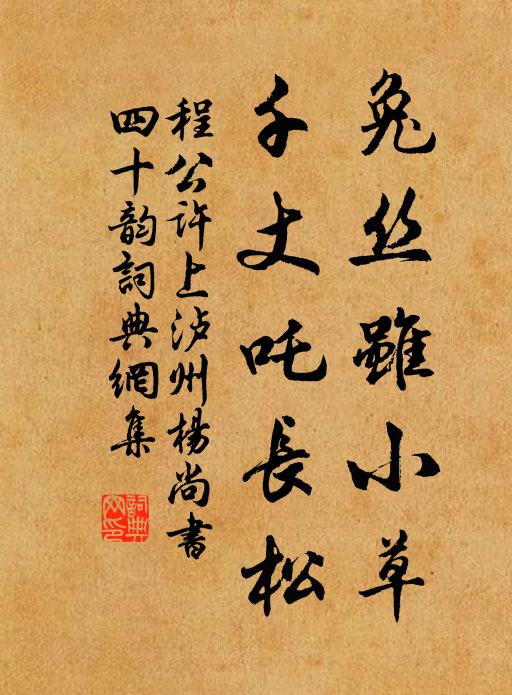 兔丝雖小草
千丈吒長松
程公许上泸州楊尚書
四十韵詞典網集
詞典
网印